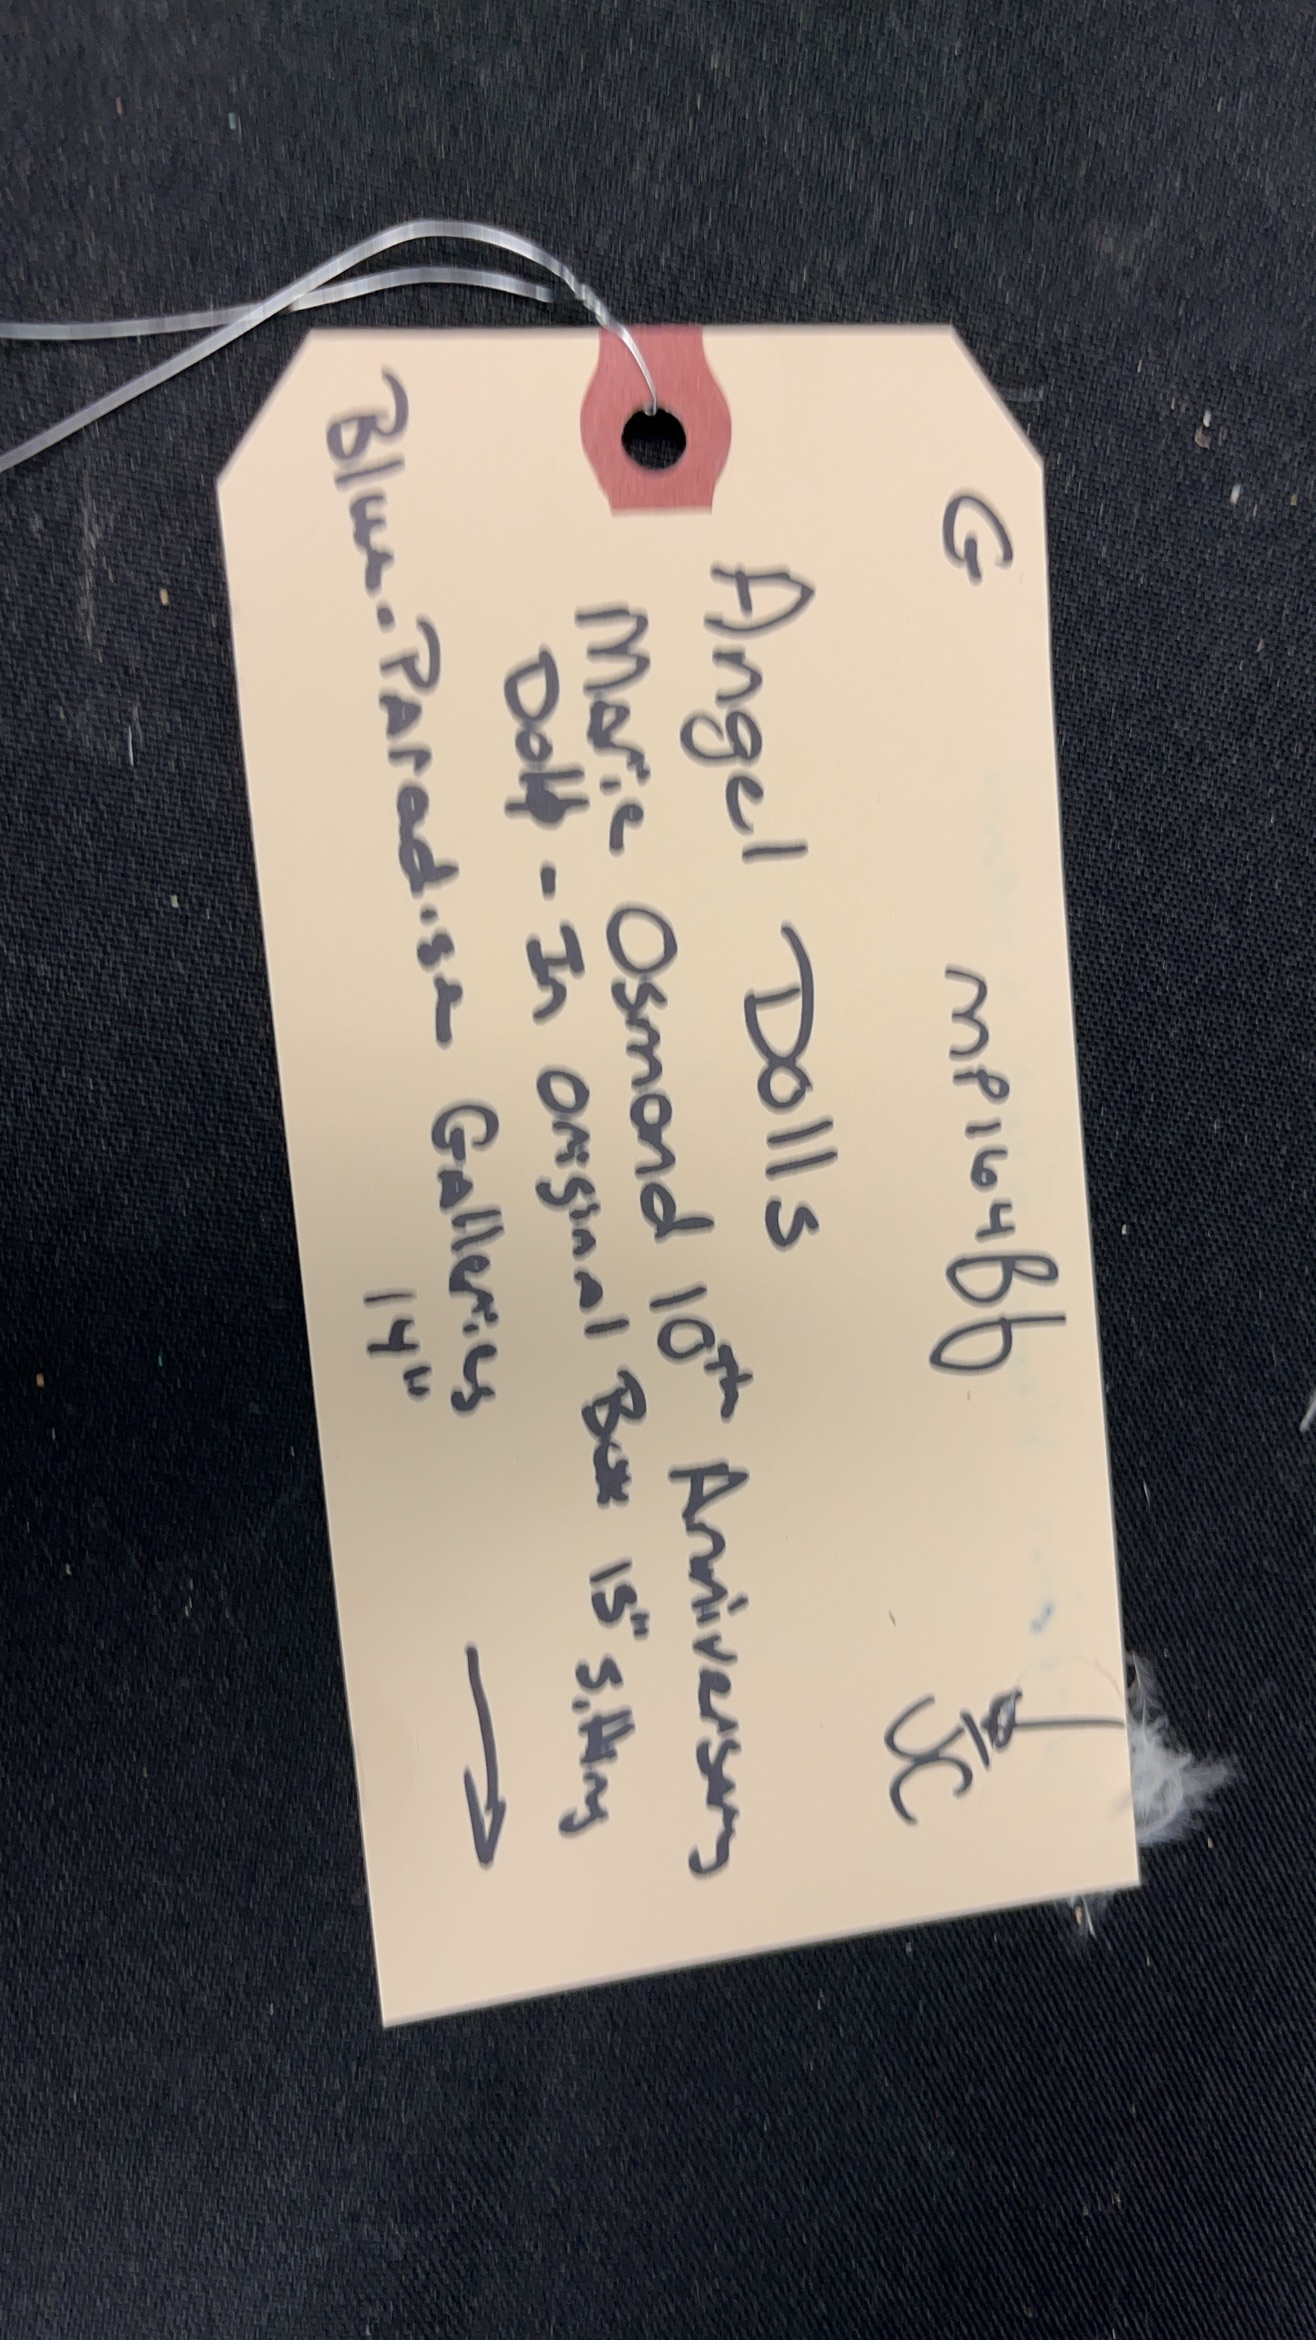 G MP164Bb
JC
Angel Dolls
Marie Osmond 10th Anniversary
Doll - In original Box 15" Sitting
Blue - Paradise Galleries
14"